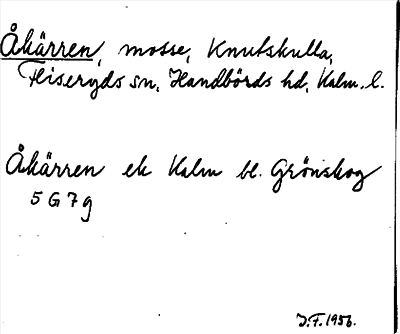 Åkärren, mosse, Knutskulla,
Fliseryds sn, Handbörds hd, Kalm. l.
Åkärren ek Kalm bl. Grönskog
5 G 7 g
J.F. 1956.